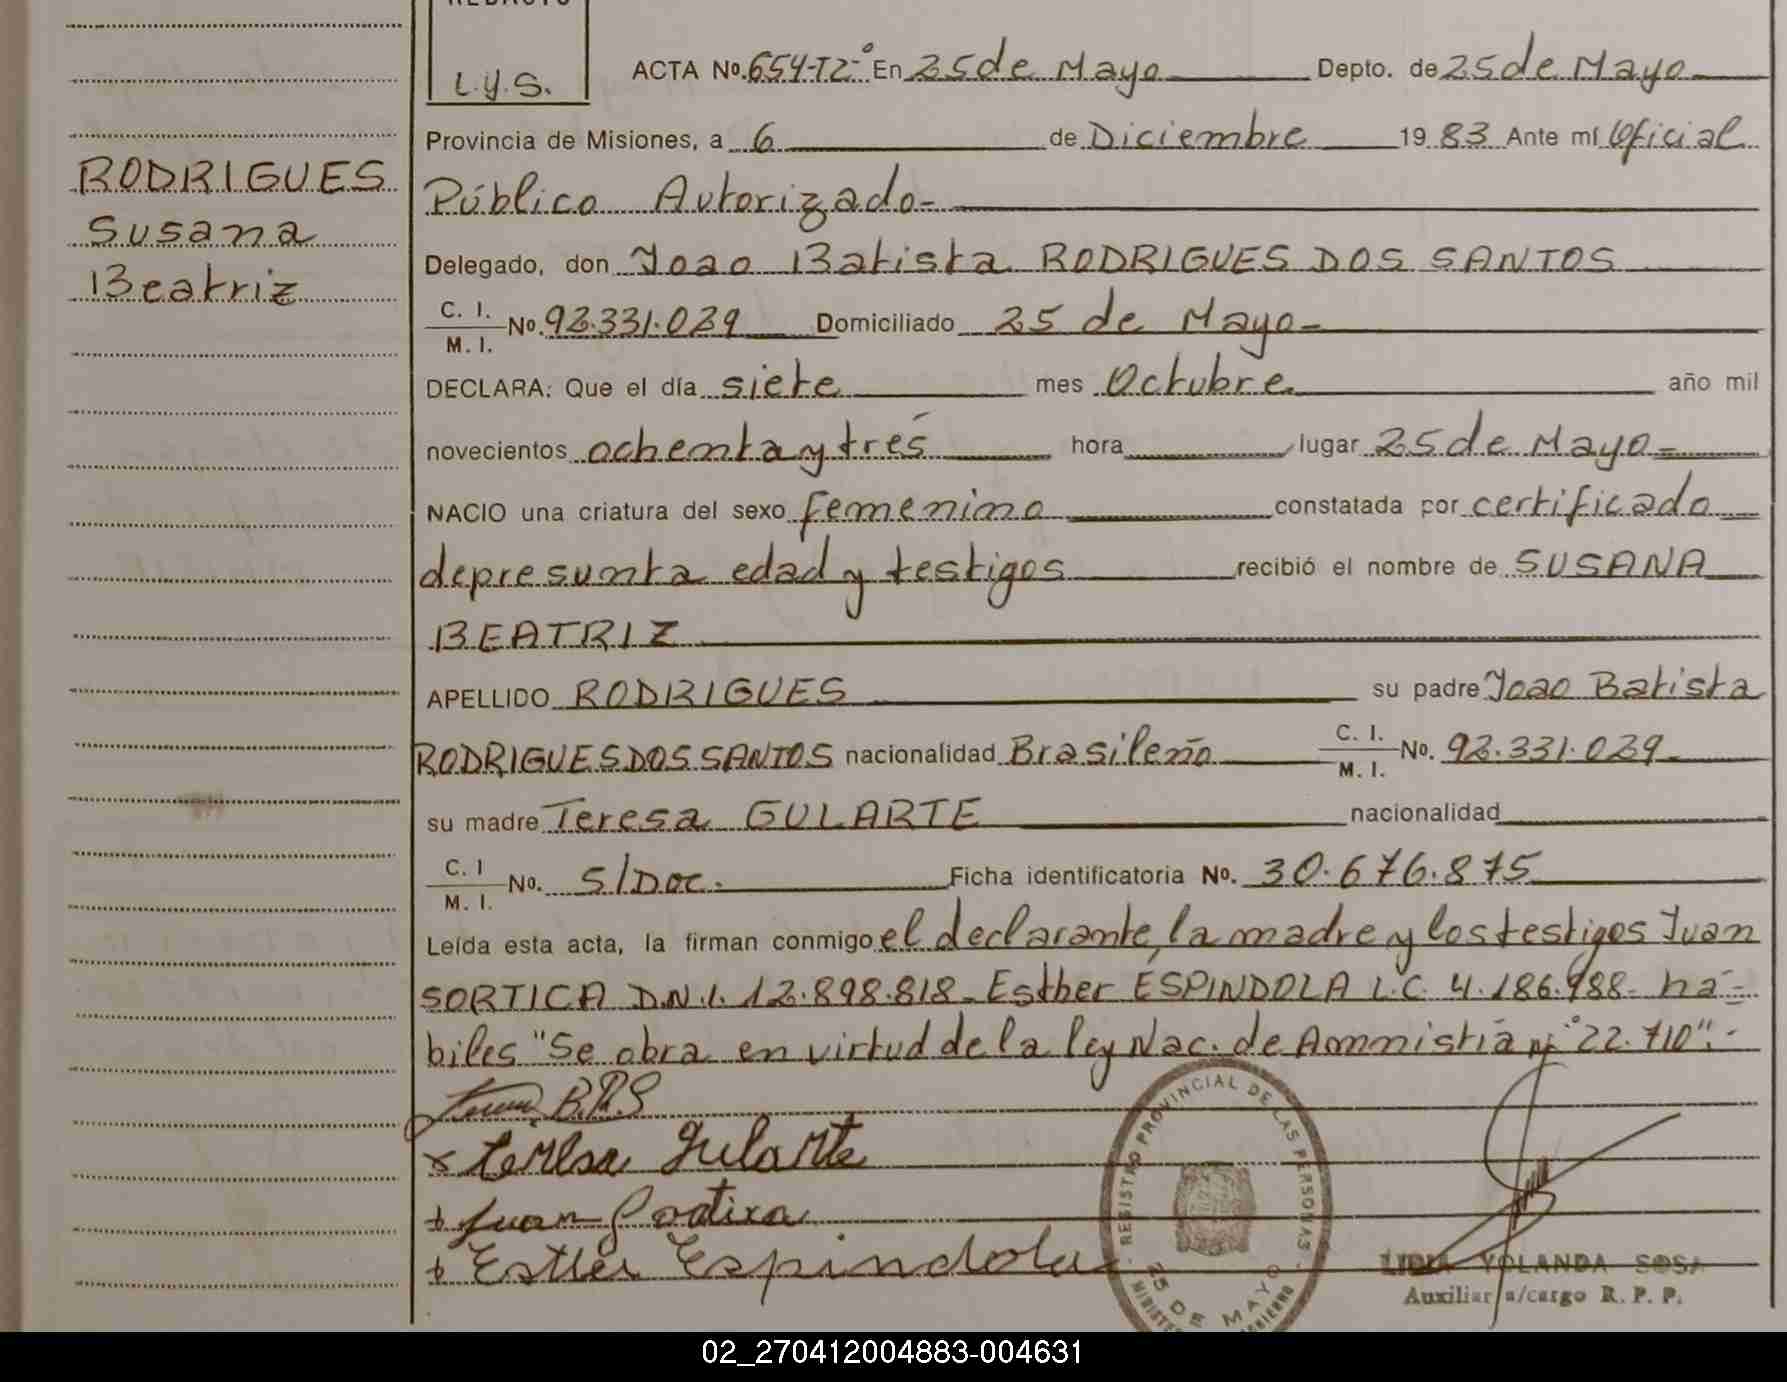 REDACTO
L.Y.S.
ACTA No. 654-T2° En 25 de Mayo Depto. de 25 de Mayo
Provincia de Misiones, a 6 de Diciembre 19 83 Ante mí Oficial
Público Autorizado-
Delegado, don Joao Batista RODRIGUES DOS SANTOS
C. I.
M. I. No. 92.331.029 Domiciliado 25 de Mayo-
DECLARA: Que el día siete mes Octubre año mil
novecientos ochenta y tres hora lugar 25 de Mayo-
NACIO una criatura del sexo femenino constatada por certificado
de presunta edad y testigos recibió el nombre de SUSANA
BEATRIZ
APELLIDO RODRIGUES su padre Joao Batista
RODRIGUES DOS SANTOS nacionalidad Brasileño C. I. M. I. No. 92.331.029
su madre Teresa GULARTE nacionalidad
C. I
M. I. No. S/Doc. Ficha identificatoria No. 30.676.875
Leída esta acta, la firman conmigo el declarante, la madre y los testigos Juan
SORTICA D.N.I. 12.898.818- Esther ESPINDOLA L.C. 4.186.988- há-
biles "Se obra en virtud de la ley Nac. de Ammistía n° 22.710".-
RODRIGUES
Susana
Beatriz
B.R.S
x teresa gularte
+ Juan Sortica
+ Esther Espindola
REGISTRO PROVINCIAL DE LAS PERSONAS
25 DE MAYO
LIDIA YOLANDA SOSA
Auxiliar a/cargo R. P. P.
02_270412004883-004631